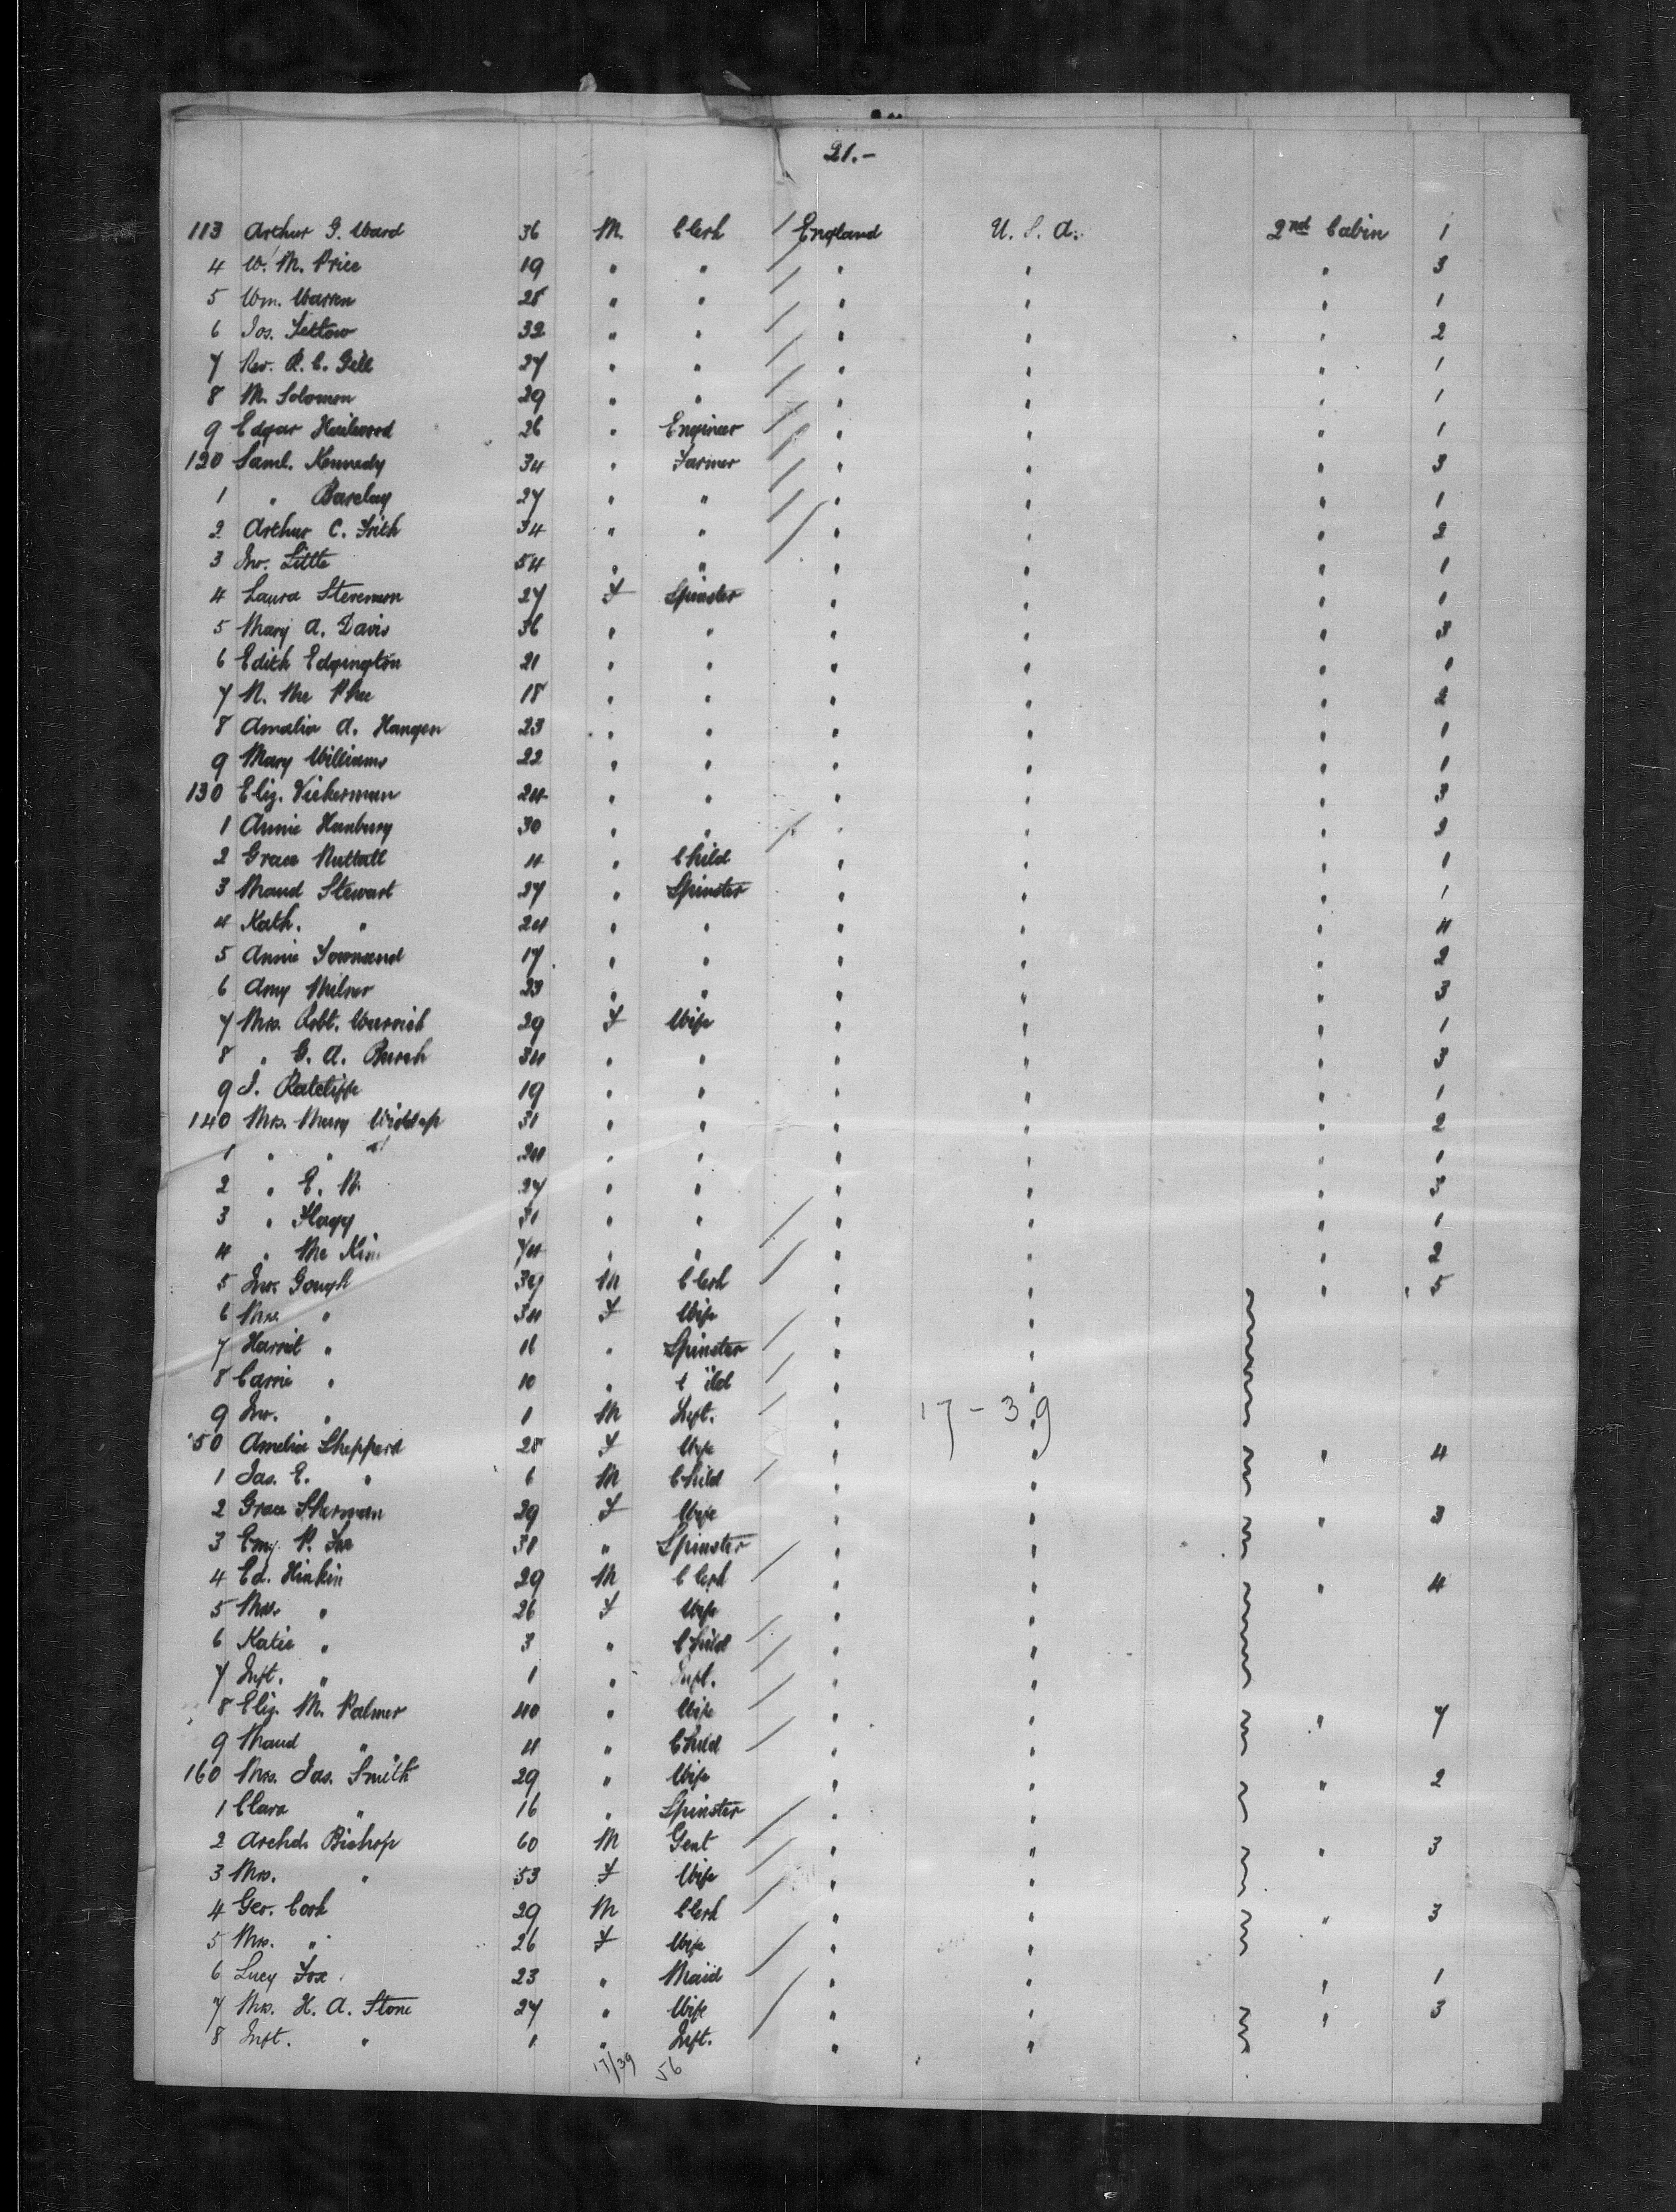 21.-
113 Arthur G. Ward 36 M. Clerk / England U. S. A. 2nd Cabin 1
4 W. M. Price 19 " " / " " " 3
5 Wm. Warren 28 " " / " " " 1
6 Jos. 32 " " / " " " 2
7 Rev. R. C. Gill 27 " " / " " " 1
8 M. Solomon 29 " " / " " " 1
9 Edgar 26 " Engineer / " " " 1
120 Saml. Kennedy 34 " Farmer / " " " 3
1 " Barclay 27 " " / " " " 1
2 Arthur C. Frith 34 " " / " " " 2
3 Jno. Little 54 " " / " " " 1
4 Laura Stevenson 27 F Spinster " " " 1
5 Mary A. Davis 36 " " " " " 3
6 Edith Edgington 21 " " " " " 1
7 N. Mc Phee 18 " " " " " 2
8 Amalia A. Hangen 23 " " " " " 1
9 Mary Williams 22 " " " " " 1
130 Eliz. Vickerman 24 " " " " " 3
1 Annie Hanbury 30 " " / " " " 2
2 Grace Nuttall 4 " Child " " " 1
3 Maud Stewart 27 " Spinster " " " 1
4 Kath. " 24 " " " " " 4
5 Annie Townsend 17 " " " " " 2
6 Amy Milner 23 " " " " " 3
7 Mrs. Robt. Warrick 29 F Wife " " " 1
8 " G. A. Burch 34 " " " " " 3
9 J. Ratcliffe 19 " " " " " 1
140 Mrs. Mary Widdup 31 " " " " " 2
1 " " 24 " " " " " 1
2 " E. N. 27 " " " " " 3
3 " Flagg 31 " " / " " " 1
4 " Mc Kim 74 " " / " " " 2
5 Jno. Gough 39 M Clerk " " " 5
6 Mrs. " 34 F Wife / " "
7 Harriet " 16 " Spinster / " "
8 Carrie " 10 " C ild / " "
9 Jno. " 1 M Inft. / " 17-39 "
50 Amelia Sheppard 28 F Wife " " " 4
1 Jas. E. " 6 M Child / " "
2 Grace Sherman 29 F Wife " " " 3
3 P. 31 " Spinster / " "
4 Ed. Hinkin 29 M Clerk " " " 4
5 Mrs. " 26 F Wife / " "
6 Katie " 3 " Child / " "
7 Inft. " 1 " Inft. / " "
8 Eliz. M. Palmer 40 " Wife " " " 7
9 Maud " 4 " Child / " "
160 Mrs. Jas. Smith 29 " Wife " " " 2
1 Clara " 16 " Spinster / " "
2 Archd. Bishop 60 M Gent / " " " 3
3 Mrs. " 53 F Wife / " "
4 Geo. Cook 29 M Clerk " " " 3
5 Mrs. " 26 F Wife / " "
6 Lucy Fox 23 " Maid / " " " 1
7 Mrs. H. A. Stone 27 " Wife / " " " 3
8 Inft. " 1 " Inft. " "
17/39 56